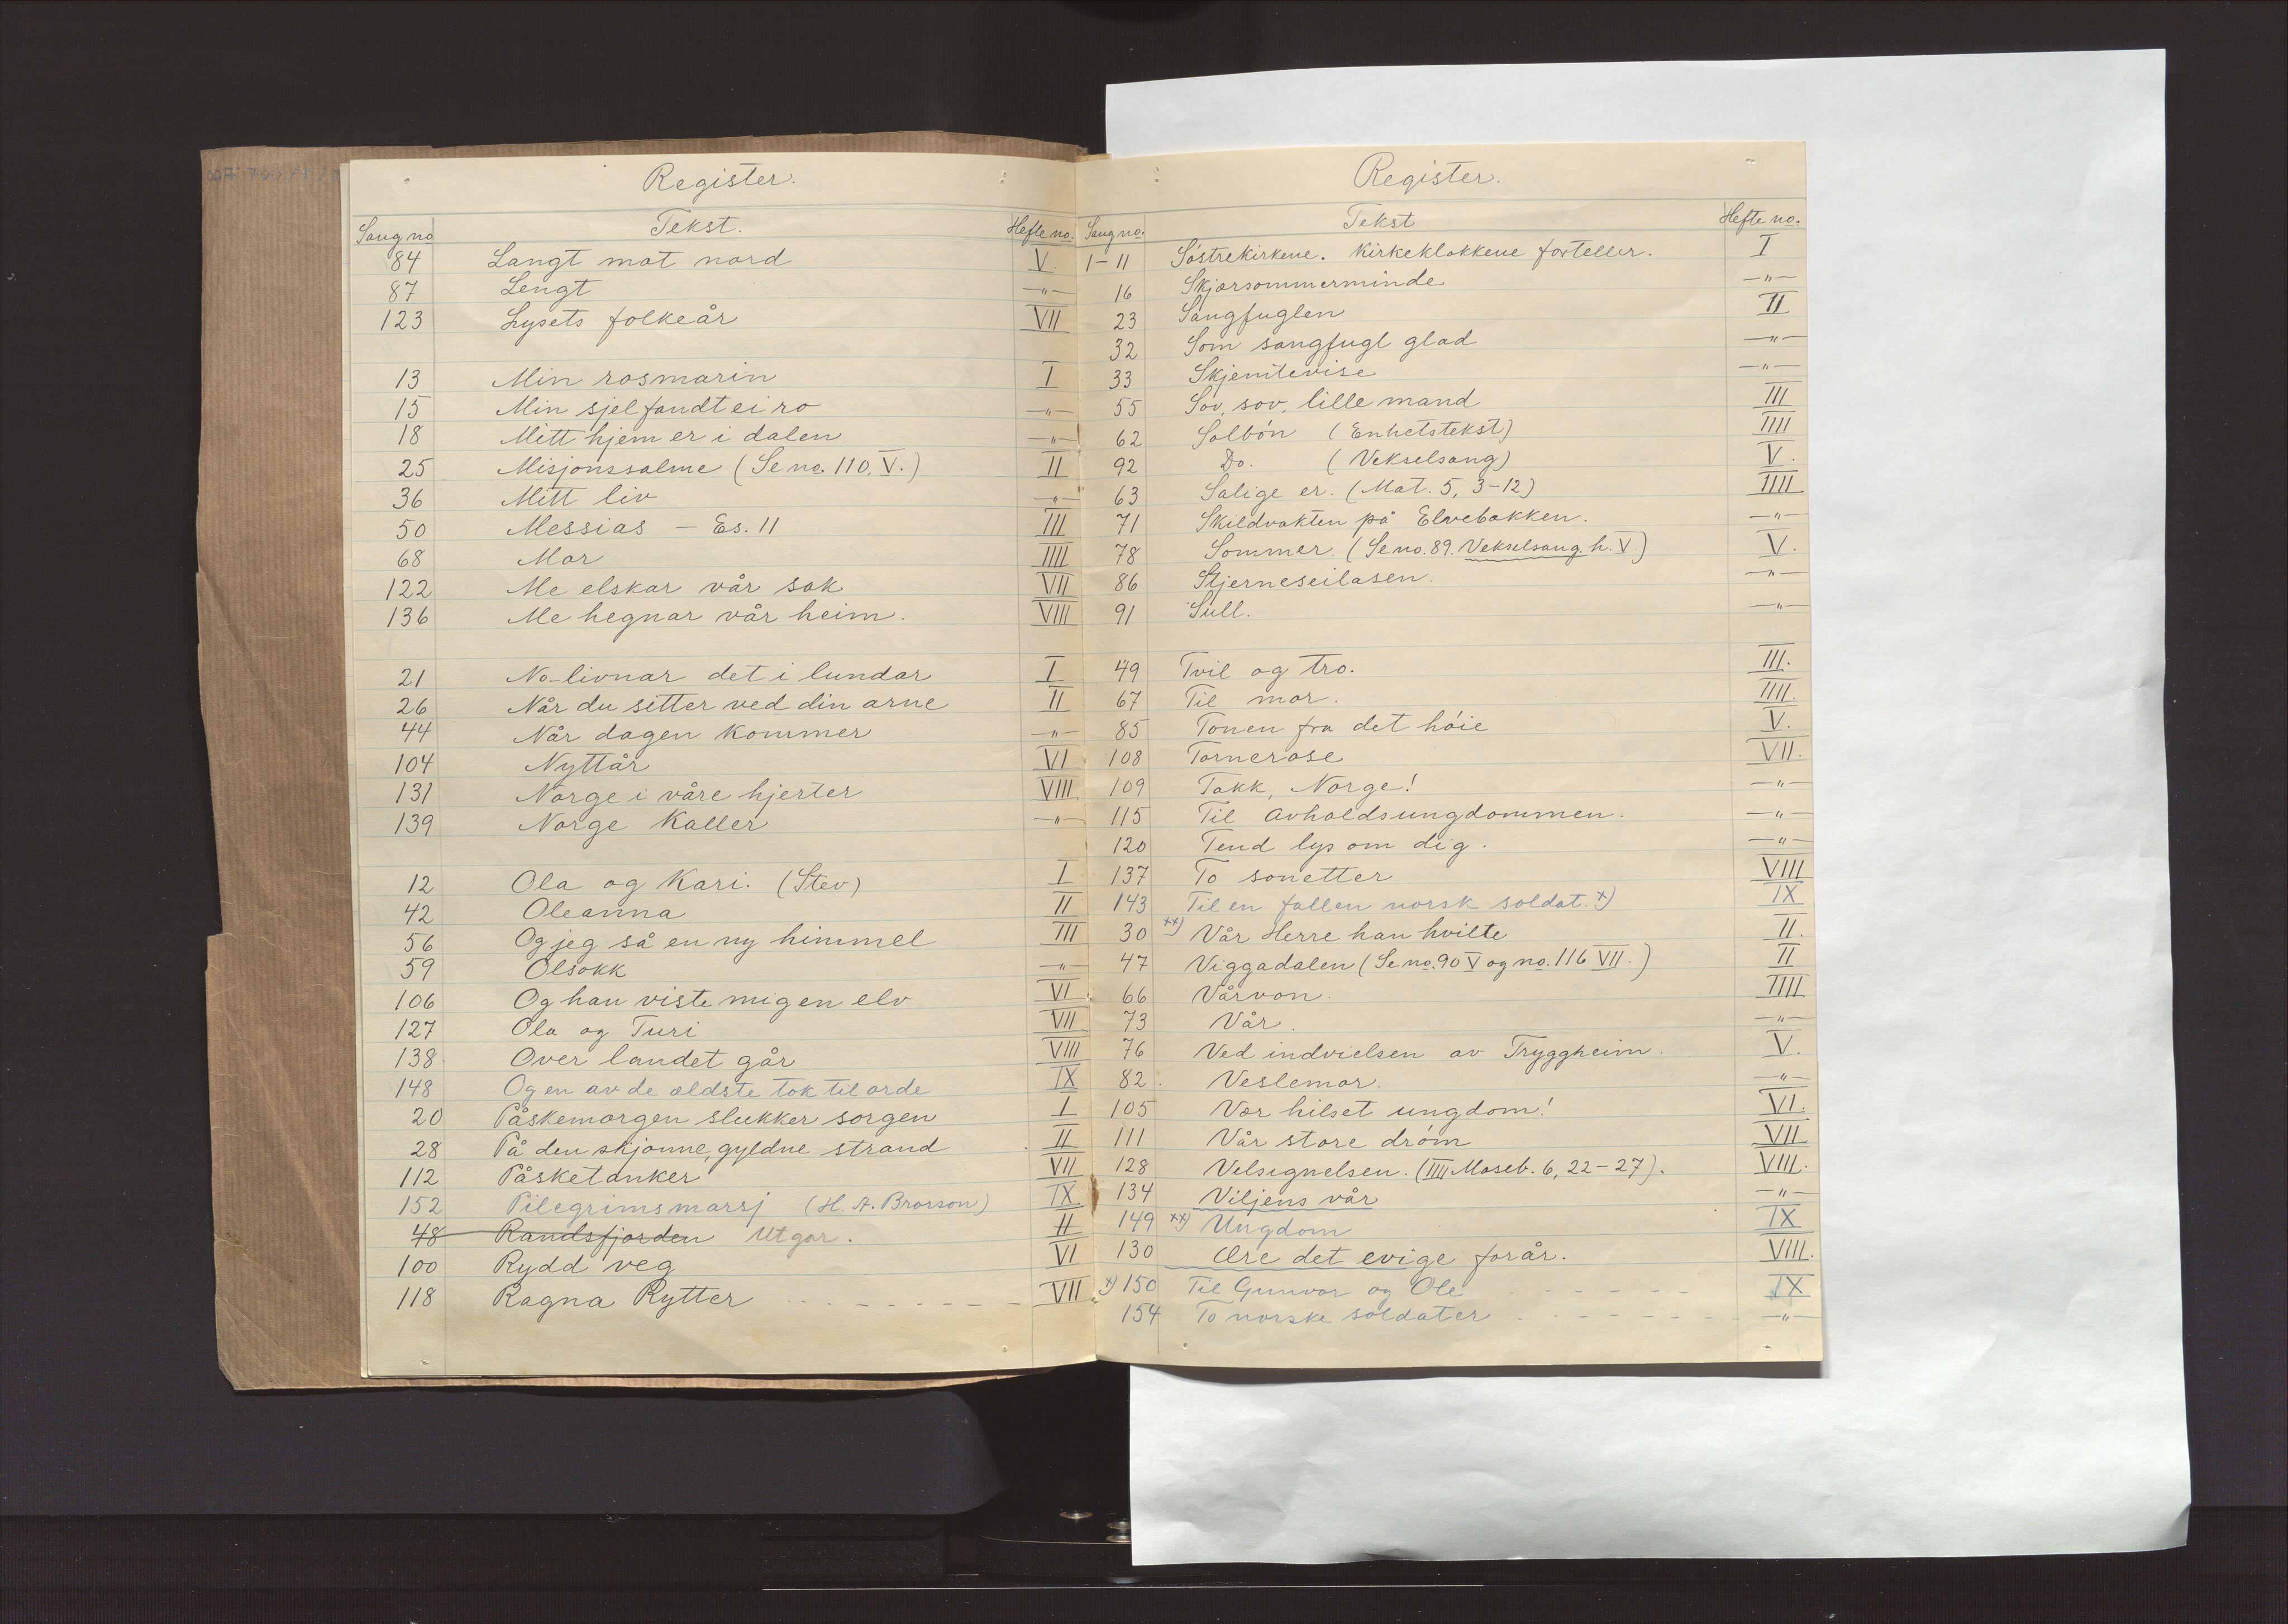 Register.
Sang no Tekst. Hefte no.
84 Langt mot nord V.
87 Lengt —"—
123 Lysets folkeår VII
13 Min rosmarin I
15 Min sjel fandt ei ro —"—
18 Mitt hjem er i dalen —"—
25 Misjonssalme (Se no. 110, V.) II
36 Mitt liv —"—
50 Messias — Es. 11 III
68 Mor IIII
122 Me elskar vår sak VII
136 Me hegnar vår heim. VIII
21 No livnar det i lundar I
26 Når du sitter ved din arne II
44 Når dagen kommer —"—
104 Nyttår VI
131 Norge i våre hjerter VIII
139 Norge kaller —"—
12 Ola og Kari. (Stev) I
42 Oleanna II
56 Og jeg så en ny himmel III
59 Olsokk —"—
106 Og han viste mig en elv VI
127 Ola og Turi VII
138 Over landet går VIII
148 Og en av de ældste tok til orde IX
20 Påskemorgen slukker sorgen I
28 På den skjønne, gyldne strand II
112 Påsketanker VII
152 Pilegrimsmarsj (H. A. Brorson) IX
48 Randsfjorden Utgår. II
100 Rydd veg VI
118 Ragna Rytter - - - - - - - VII
Register.
Sang no. Tekst Hefte no.
1-11 Søstrekirkene. Kirkeklokkene forteller. I
16 Skjærsommerminde —"—
23 Sangfuglen II
32 Som sangfugl glad —"—
33 Skjemtevise —"—
55 Sov, sov, lille mand III
62 Solbøn (Enhetstekst) IIII
92 Do. (Vekselsang) V.
63 Salige er. (Mat. 5, 3-12) IIII
71 Skildvakten på Elvebakken. —"—
78 Sommer. (Se no. 89. Vekselsang h. V.) V.
86 Stjerneseilasen. —"—
91 Sull. —"—
49 Tvil og tro. III.
67 Til mor. IIII.
85 Tonen fra det høie V.
108 Tornerose VII.
109 Takk, Norge! —"—
115 Til avholdsungdommen. —"—
120 Tend lys om dig. —"—
137 To sonetter VIII
143 Til en fallen norsk soldat. x) IX
30 xx) Vår Herre han hvilte II.
47 Viggadalen (Se no. 90 V og no. 116 VII.) II
66 Vårvon. IIII
73 Vår. —"—
76 Ved indvielsen av Tryggheim. V.
82. Veslemor. —"—
105 Vær hilset ungdom! VI.
111 Vår store drøm VII
128 Velsignelsen. (IIII Moseb. 6, 22-27). VIII.
134 Viljens vår —"—
149 xx) Ungdom IX
130 Ære det evige forår. VIII.
x) 150 Til Gunvor og Ole - - - - - - IX
154 To norske soldater - - - - - - —"—